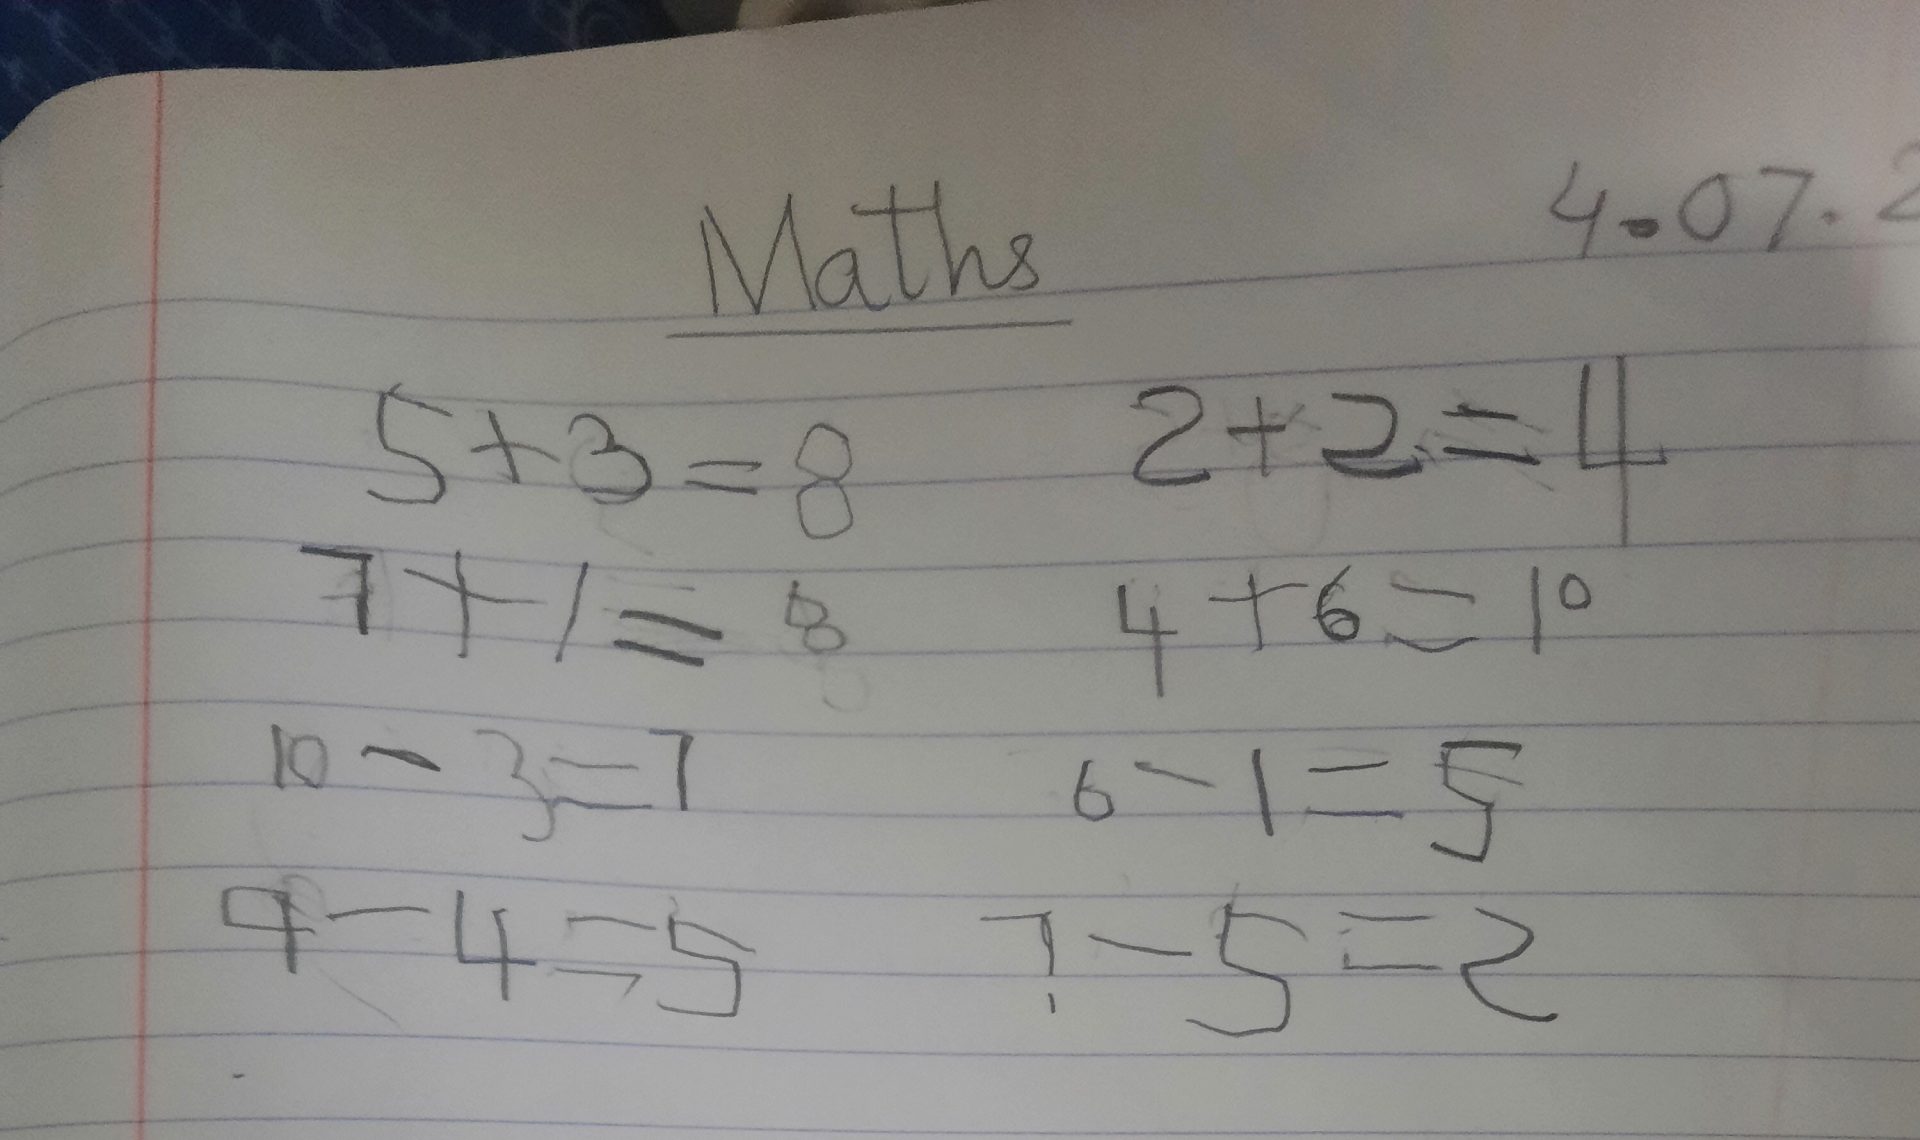 Maths
4.07.2
5+3=8 2+2=4
7+1=8 4+6=10
10-3=7 6-1=5
9-4=5 7-5=2